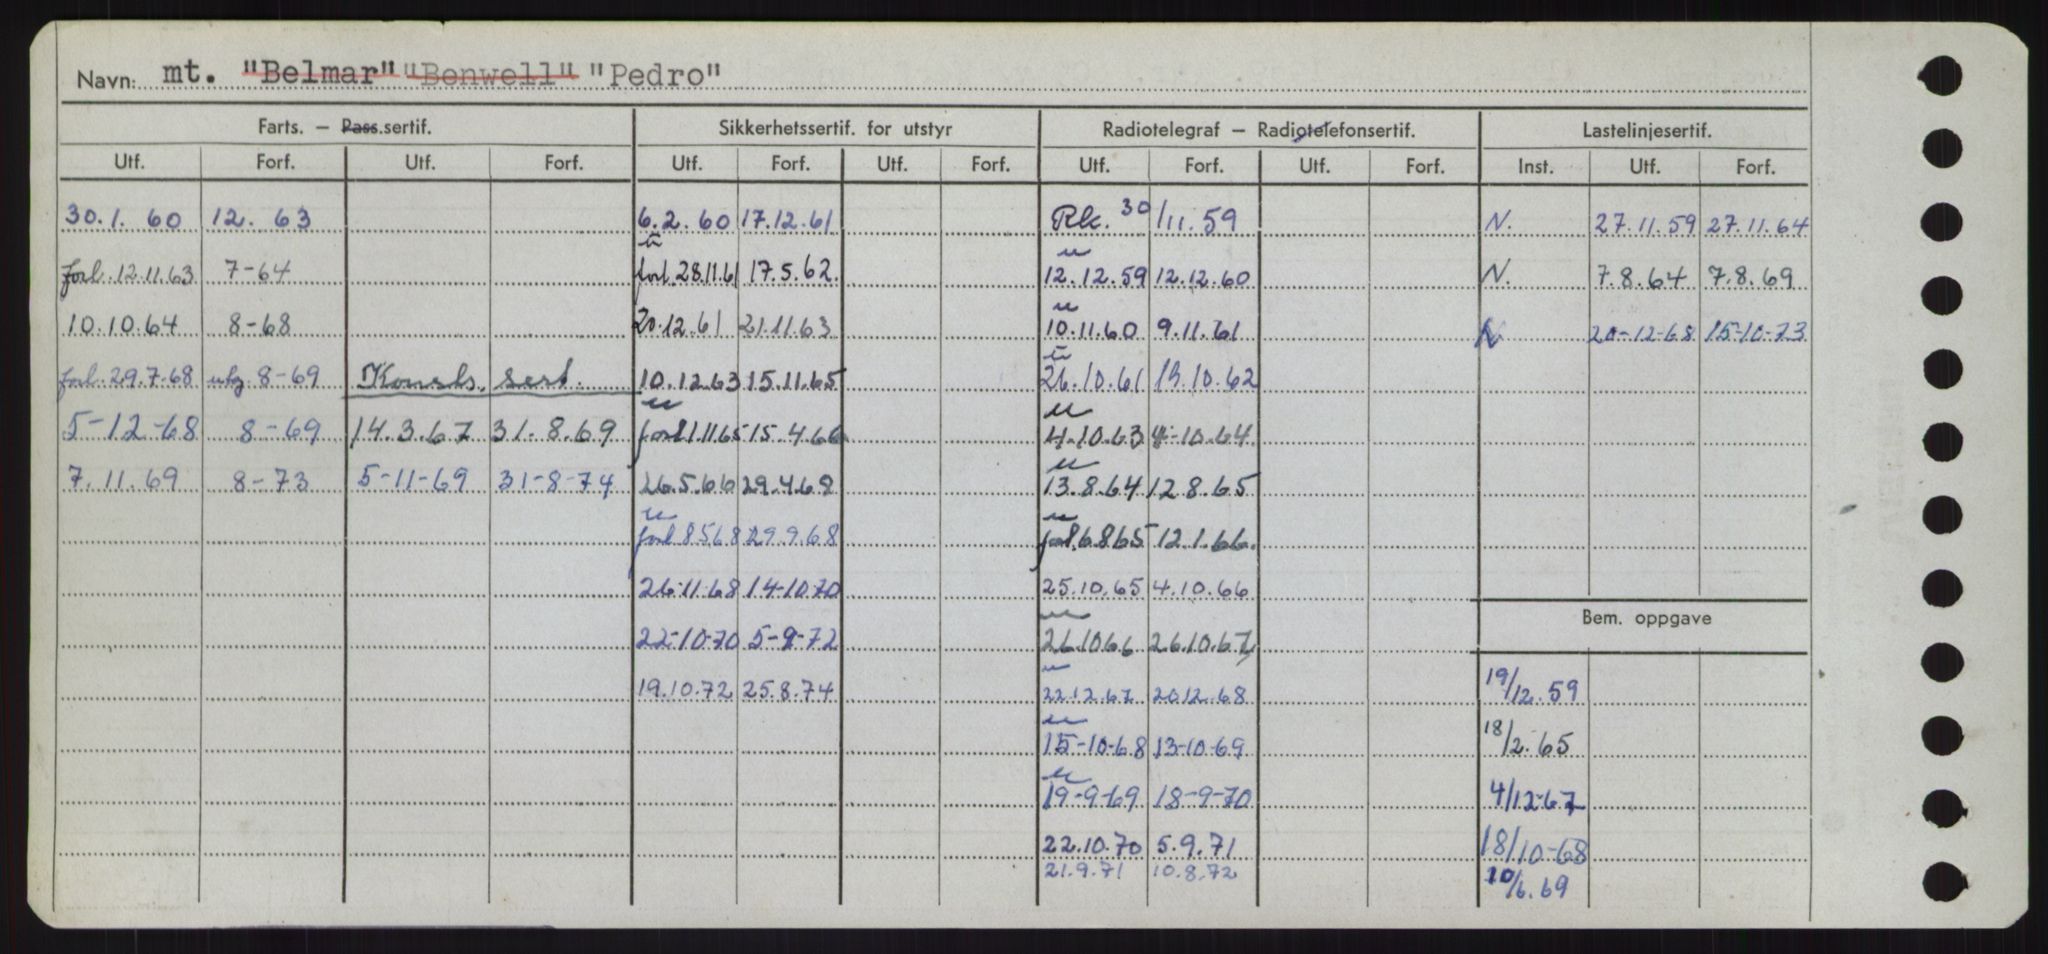 Navn: mt. "Belmar" "Benwell" "Pedro"
Farts. – Pass.sertif. Sikkerhetssertif. for utstyr Radiotelegraf – Radiotelefonsertif. Lastelinjesertif.
Utf. Forf. Utf. Forf. Utf. Forf. Utf. Forf. Utf. Forf. Utf. Forf. Inst. Utf. Forf.
30.1. 60 12. 63 6.2.60 17.12.61 Rk. 30/11.59 N. 27.11.59 27.11.64
forl. 12.11.63 7-64 forl. 28.11.61 17.5.62. 12.12.59 12.12.60 N. 7.8.64 7.8.69
10.10.64 8-68 20.12.61 21.11.63 10.11.60 9.11.61 N 20-12-68 15-10-73
forl. 29.7.68 utg. 8-69 Konstr. sert. 10.12.63 15.11.65 26.10.61 19.10.62
5-12-68 8-69 14.3.67 31.8.69 forl 1.11.65 15.4.66 4.10.63 4-10.64.
7.11.69 8-73 5-11-69 31-8-74 26.5.66 29.4.68 13.8.64 12.8.65
forl 8568 29.9.68 forl. 6.865 12.1.66.
26-11-68 14-10-70 25.10.65 4.10.66
22-10-70 5-9-72 Bem. oppgave
26.10.66 26.10.67
19.10.72 25.8.74 22.12.67 20.12.68 19/12.59
15-10-68 13-10-69 18/2.65
19-9-69 18-9-70 4/12-67
22.10.70 5.9.71 18/10-68
21.9.71 10.8.72 10/6.69